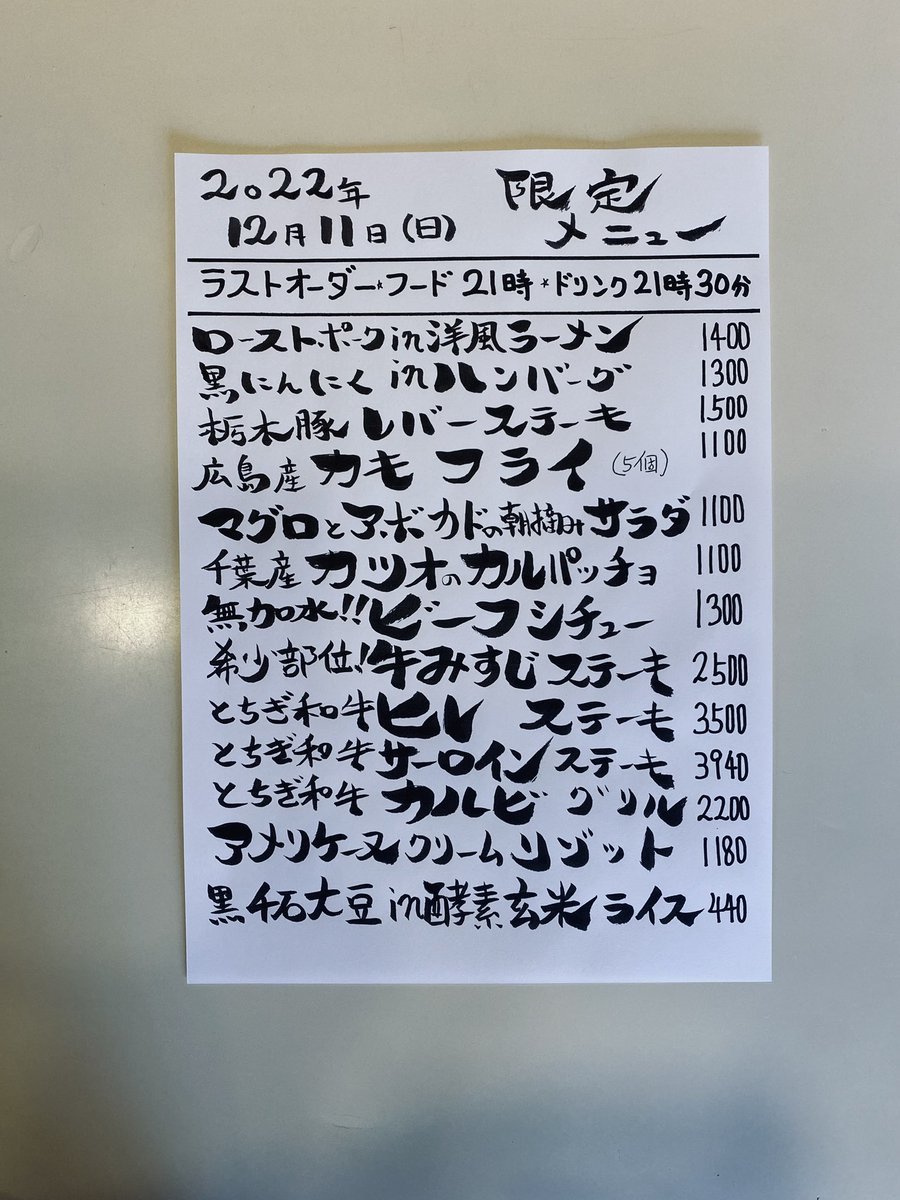 2022年 限定
12月11日(日) メニュー
ラストオーダー☆フード 21時 ☆ドリンク21時30分
ローストポークin洋風ラーメン 1400
黒にんにく inハンバーグ 1300
栃木豚 レバーステーキ 1500
広島産 カキフライ (5個) 1100
マグロとアボカドの朝摘みサラダ 1100
千葉産 カツオのカルパッチョ 1100
無加水!!ビーフシチュー 1300
希少部位!牛みすじステーキ 2500
とちぎ和牛ヒレ ステーキ 3500
とちぎ和牛サーロインステーキ 3940
とちぎ和牛 カルビグリル 2200
アメリケーヌクリームリゾット 1180
黒千石大豆in酵素玄米ライス 440